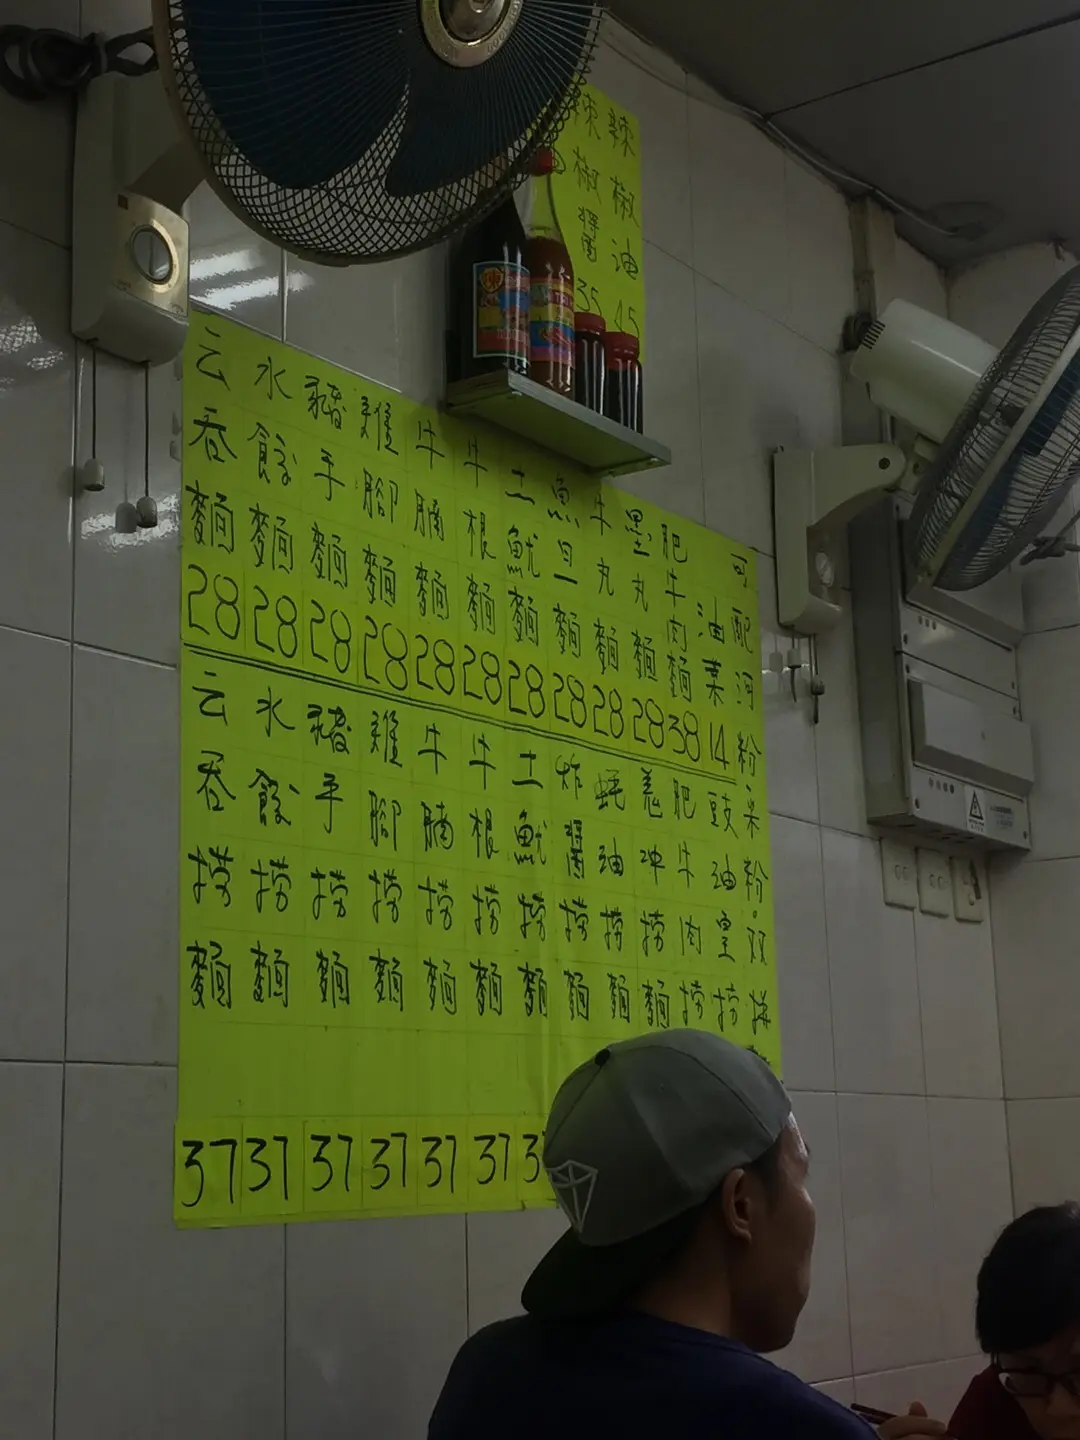 辣椒油 45
辣椒醬 35
云吞麵 28
水餃麵 28
豬手麵 28
雞腳麵 28
牛腩麵 28
牛根麵 28
土魷麵 28
魚旦麵 28
牛丸麵 28
墨丸麵 28
肥牛肉麵 38
油菜 14
可配河粉.米粉.双拼
云吞捞麵 37
水餃捞麵 37
豬手捞麵 37
雞腳捞麵 37
牛腩捞麵 37
牛根捞麵 37
土魷捞麵 37
炸醬捞麵
蚝油捞麵
羗冲捞麵
肥牛肉捞
豉油皇捞